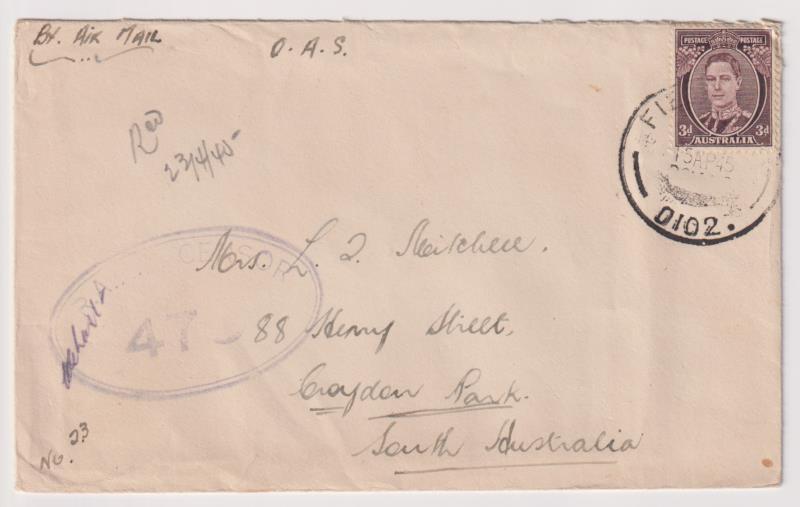 By. AIR MAIL
O. A. S.
POSTAGE POSTAGE
3d 3d
AUSTRALIA
15 AP 45
0102
Rec
23/4/45
CENSOR
47
Mrs. L. J. Mitchell.
88 Henry Street,
Croydon Park.
South Australia
No. 23